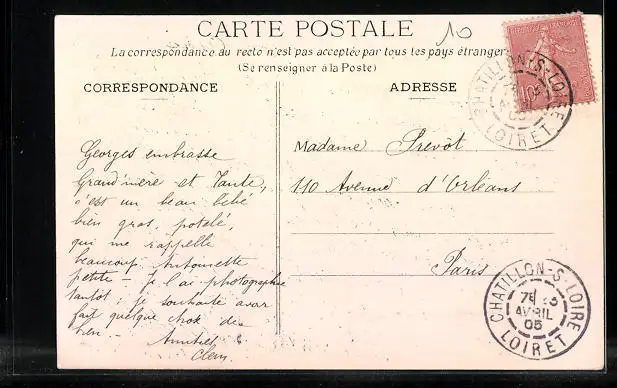 CARTE POSTALE
10
La correspondance au recto n'est pas acceptée par tous les pays étrangers
(Se renseigner à la Poste)
CORRESPONDANCE
ADRESSE
Georges embrasse
Grand'mère et Tante,
c'est un beau bébé
bien gros, potelé,
qui me rappelle
beaucoup Antoinette
petite - je l'ai photographié
tantôt ; je souhaite avoir
fait quelque chose de
bien. -
Amitiés
Clem.
Madame Prevôt
110 Avenue d'Orléans
Paris
CHATILLON-S-LOIRE
LOIRET
CHATILLON-S-LOIRE
AVRIL
05
LOIRET